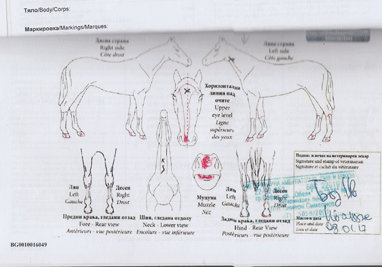 Тяло/Body/Corps:
Маркировка/Markings/Marques:
Дясна страна
Right side
Côté droit
Лява страна
Left side
Côté gauche
Хоризонтална
линия над
очите
Upper
eye level
Ligne
supérieure
des yeux
Ляв
Left
Gauche
Десен
Right
Droit
Предни крака, гледани отзад
Fore - Rear view
Antérieurs - vue postérieure
Шия, гледана отдолу
Neck - Lower view
Encolure - vue inférieure
Муцуна
Muzzle
Nez
Ляв
Left
Gauche
Десен
Right
Droit
Задни крака, гледани отзад
Hind - Rear view
Postérieurs - vue postérieure
Signature and stamp of veterinarian
Място и дата
Place and date
Lieu et date
BG0010016049